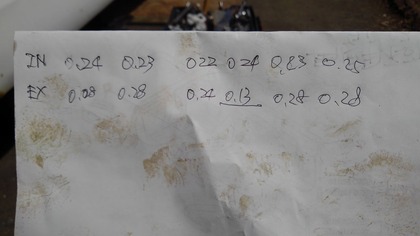 IN 0.24 0.23 0.22 0.24 0.23 0.25
EX 0.28 0.28 0.21 0.13 0.28 0.28